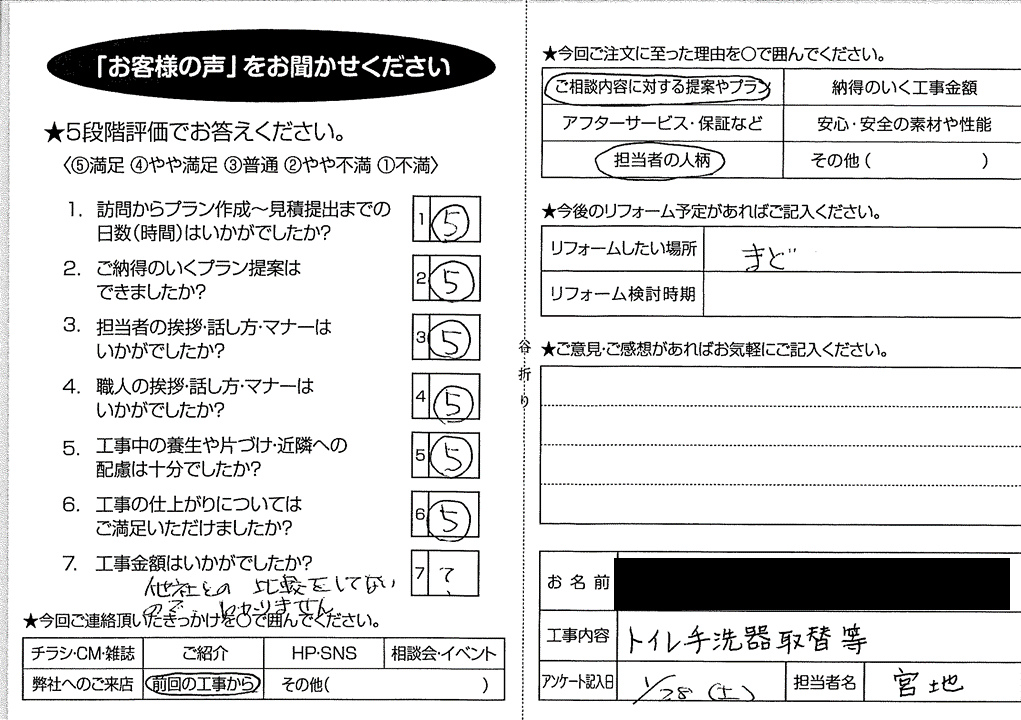 「お客様の声」をお聞かせください
★5段階評価でお答えください。
〈⑤満足 ④やや満足 ③普通 ②やや不満 ①不満〉
1. 訪問からプラン作成～見積提出までの
日数(時間)はいかがでしたか?
1 ⑤
2. ご納得のいくプラン提案は
できましたか?
2 ⑤
3. 担当者の挨拶・話し方・マナーは
いかがでしたか?
3 ⑤
4. 職人の挨拶・話し方・マナーは
いかがでしたか?
4 ⑤
5. 工事中の養生や片づけ・近隣への
配慮は十分でしたか?
5 ⑤
6. 工事の仕上がりについては
ご満足いただけましたか?
6 ⑤
7. 工事金額はいかがでしたか?
7 ?
他社との比較をしてない
ので わかりません
★今回ご連絡頂いたきっかけを〇で囲んでください。
チラシ・CM・雑誌 ご紹介 HP・SNS 相談会・イベント
弊社へのご来店 前回の工事から その他( )
谷折り
★今回ご注文に至った理由を〇で囲んでください。
ご相談内容に対する提案やプラン 納得のいく工事金額
アフターサービス・保証など 安心・安全の素材や性能
担当者の人柄 その他( )
★今後のリフォーム予定があればご記入ください。
リフォームしたい場所 まど
リフォーム検討時期
★ご意見・ご感想があればお気軽にご記入ください。
お名前
工事内容 トイレ手洗器取替等
アンケート記入日 1/28(土) 担当者名 宮地